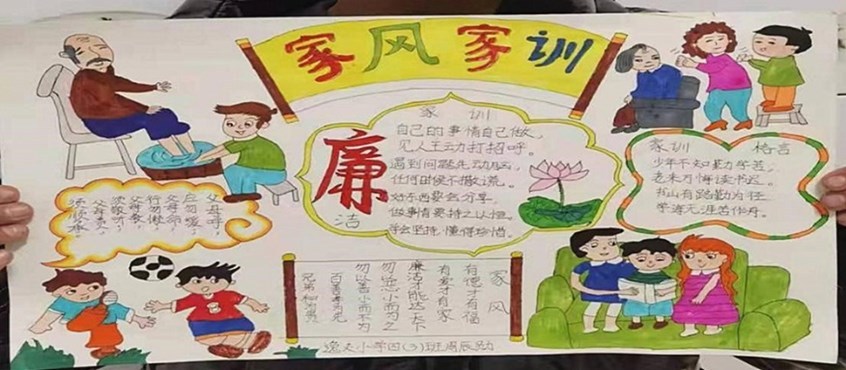 家风家训
家 训
自己的事情自己做,
见人主动打招呼。
遇到问题先动脑,
任何时候不撒谎。
好东西要会分享,
做事情要持之以恒。
学会坚持懂得珍惜。
廉
洁
家训 格言
少年不知勤学苦,
老来方悔读书迟。
书山有路勤为径
学海无涯苦作舟。
父母呼,
应勿缓。
父母命,
行勿懒。
父母教,
须敬听。
父母责,
须顺承。
家风
有德才有福
有爱才有家
廉洁才能达天下
勿以恶小而为之
勿以善小而不为
百善孝为先
兄弟和为贵
逸夫小学四(3)班周辰